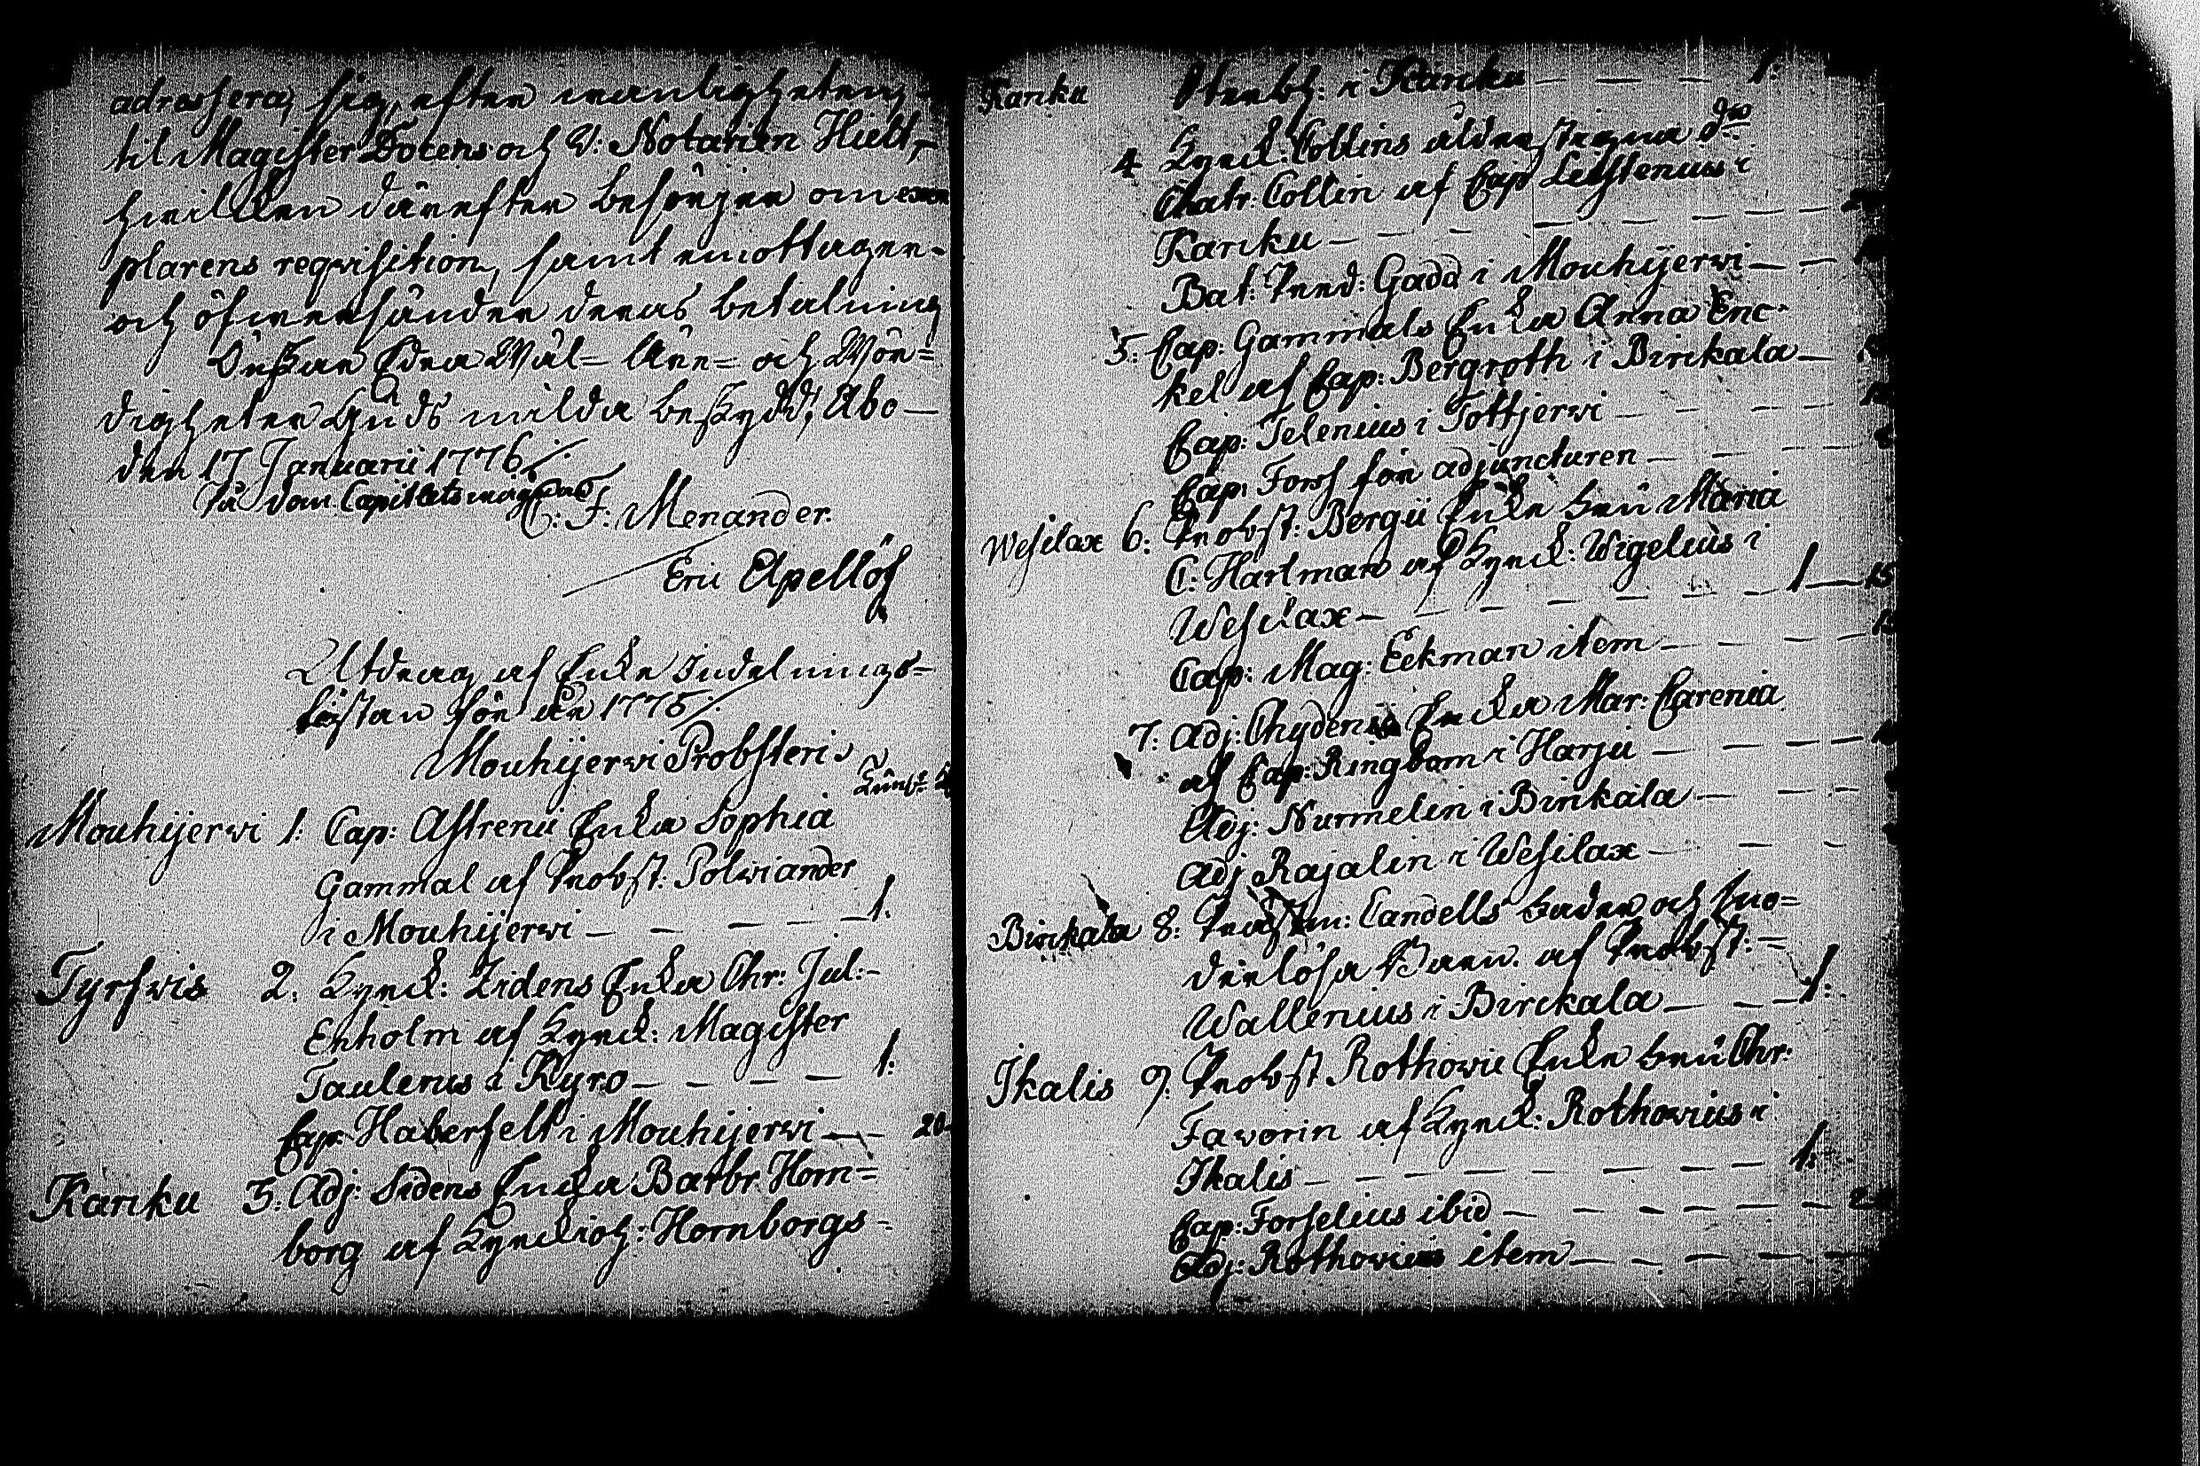 adressera sig, efter vanligheten,
til Magister Docens och V: Notarien Hielt,
hvilken därefter besörjer om exem
plarens reqvisition, samt emottager
och öfversänder deras betalning
Önskar Edra Wäl- Ähr- och Wör=
digheter Guds milda beskydd, Åbo
den 17 Januarii 1776
På Dom Capitlets wägnar
C: F: Menander.
Eric Apellöf
Utdrag af Enke Indelnings=
listan för år 1775
Mouhijerwi Probsteri
Mouhijerwi 1: Cap: Astrenii Enka Sophia
Gammal af Probst. Polviander
i Mouhijerwi — — — — 1.
Tyrfwis 2: Kyrck: Lidens Enka Chr: Jul:
Enholm af Kyrck: Magister
Taulerus i Kyro — — — — 1:
Cap: Haberfelt i Mouhijerwi — — 20
Karcku 3: Adj: Lidens Enka Barbr. Horn=
borg af Kyrckioh: Hornborgs
Karcku Sterbh: i Karcku — — — 1:
4 Kyrck: Collins älderstegna
Chatr: Collin af Cap Leistenius i
Karcku — — — — — — —
Bat: Pred: Gadd i Mouhijerwi — —
5: Cap: Gammals Enka Anna Enc-
kel af Cap: Bergroth i Birckala —
Cap: Telenius i Tottjerwi — — —
Cap: Forss för adjuncturen — — —
Wesilax 6: Probst: Bergii Enke Fru Maria
C: Hartman af Kyrck: Wigelius i
Wesilax — — — — — — 1 — 15
Cap: Mag: Eekman item — — — —
7: Adj: Chydenii Enka Mar: Carenia
af Cap: Ringbom i Harju — — — —
Adj: Nurmelin i Birckala — — —
Adj Rajalin i Wesilax — — —
Birckala 8: Candells Fader och Mo=
derlösa Barn. af Probst:
Wallenius i Birckala — — — 1:
Ikalis 9: Probst Rothovii Enke Fru Chr:
Favorin af Kyrck: Rothovius i
Ikalis — — — — — — — 1:
Cap: Forselius ibid — — — — — —
Adj: Rothovius item — — — — —